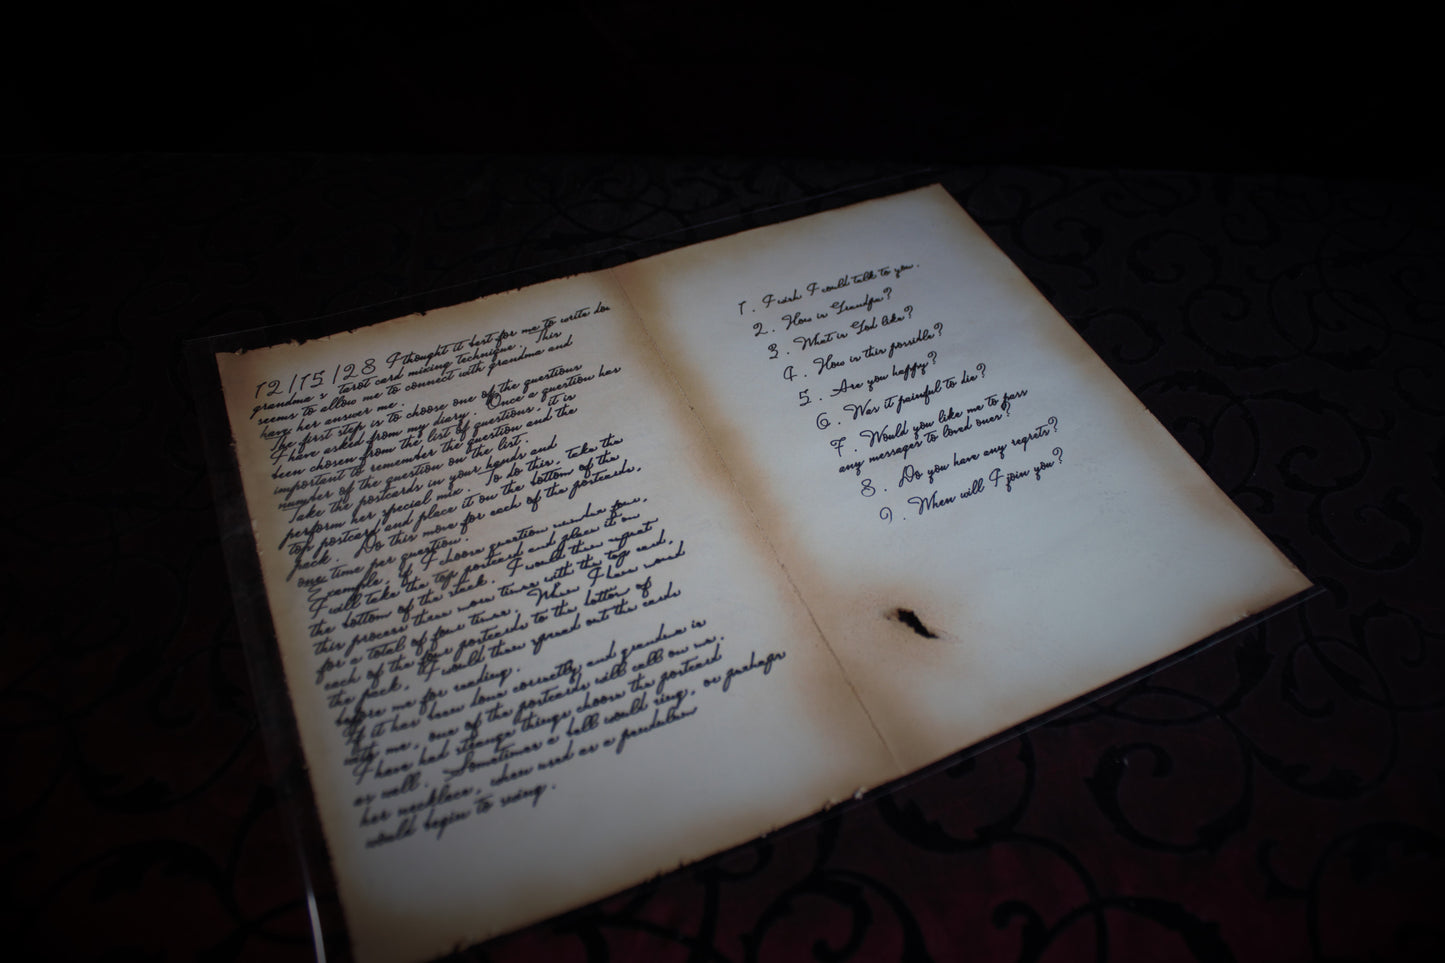 12/15/28 I thought it best for me to write dow
grandma's tarot card mixing technique. This
seems to allow me to connect with grandma and
have her answer me.
The first step is to choose one of the questions
I have asked from my diary. Once a question has
been chosen from the list of questions, it is
important to remember the question and the
number of the question on the list.
Take the postcards in your hands and
perform her special mix. To do this, take the
top postcard and place it on the bottom of the
pack. Do this move for each of the postcards,
one time per question.
Example, if I choose question number four,
I will take the top postcard and place it on
the bottom of the stack. I would then repeat
this process three more times with the top card,
for a total of four times. When I have moved
each of the four postcards to the bottom of
the pack, I would then spread out the cards
before me for reading.
If it has been done correctly and grandma is
with me, one of the postcards will call on me.
I have had strange things choose the postcard
as well. Sometimes a bell would ring, or perhaps
her necklace, when used as a pendulum
would begin to swing.
1. I wish I could talk to you.
2. How is Grandpa?
3. What is God like?
4. How is this possible?
5. Are you happy?
6. Was it painful to die?
7. Would you like me to pass
any messages to loved ones?
8. Do you have any regrets?
9. When will I join you?